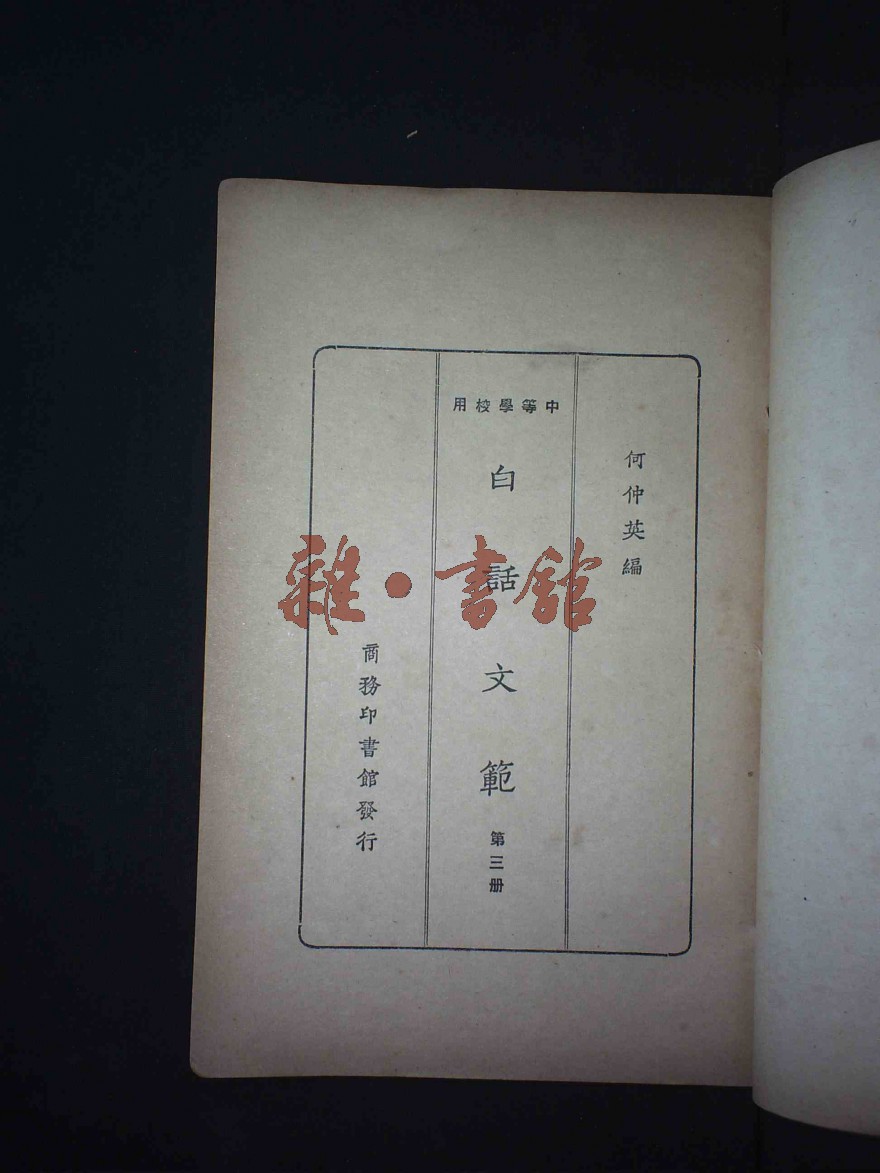 何仲英編
中等學校用
白話文範
第三册
商務印書館發行
雜·書館